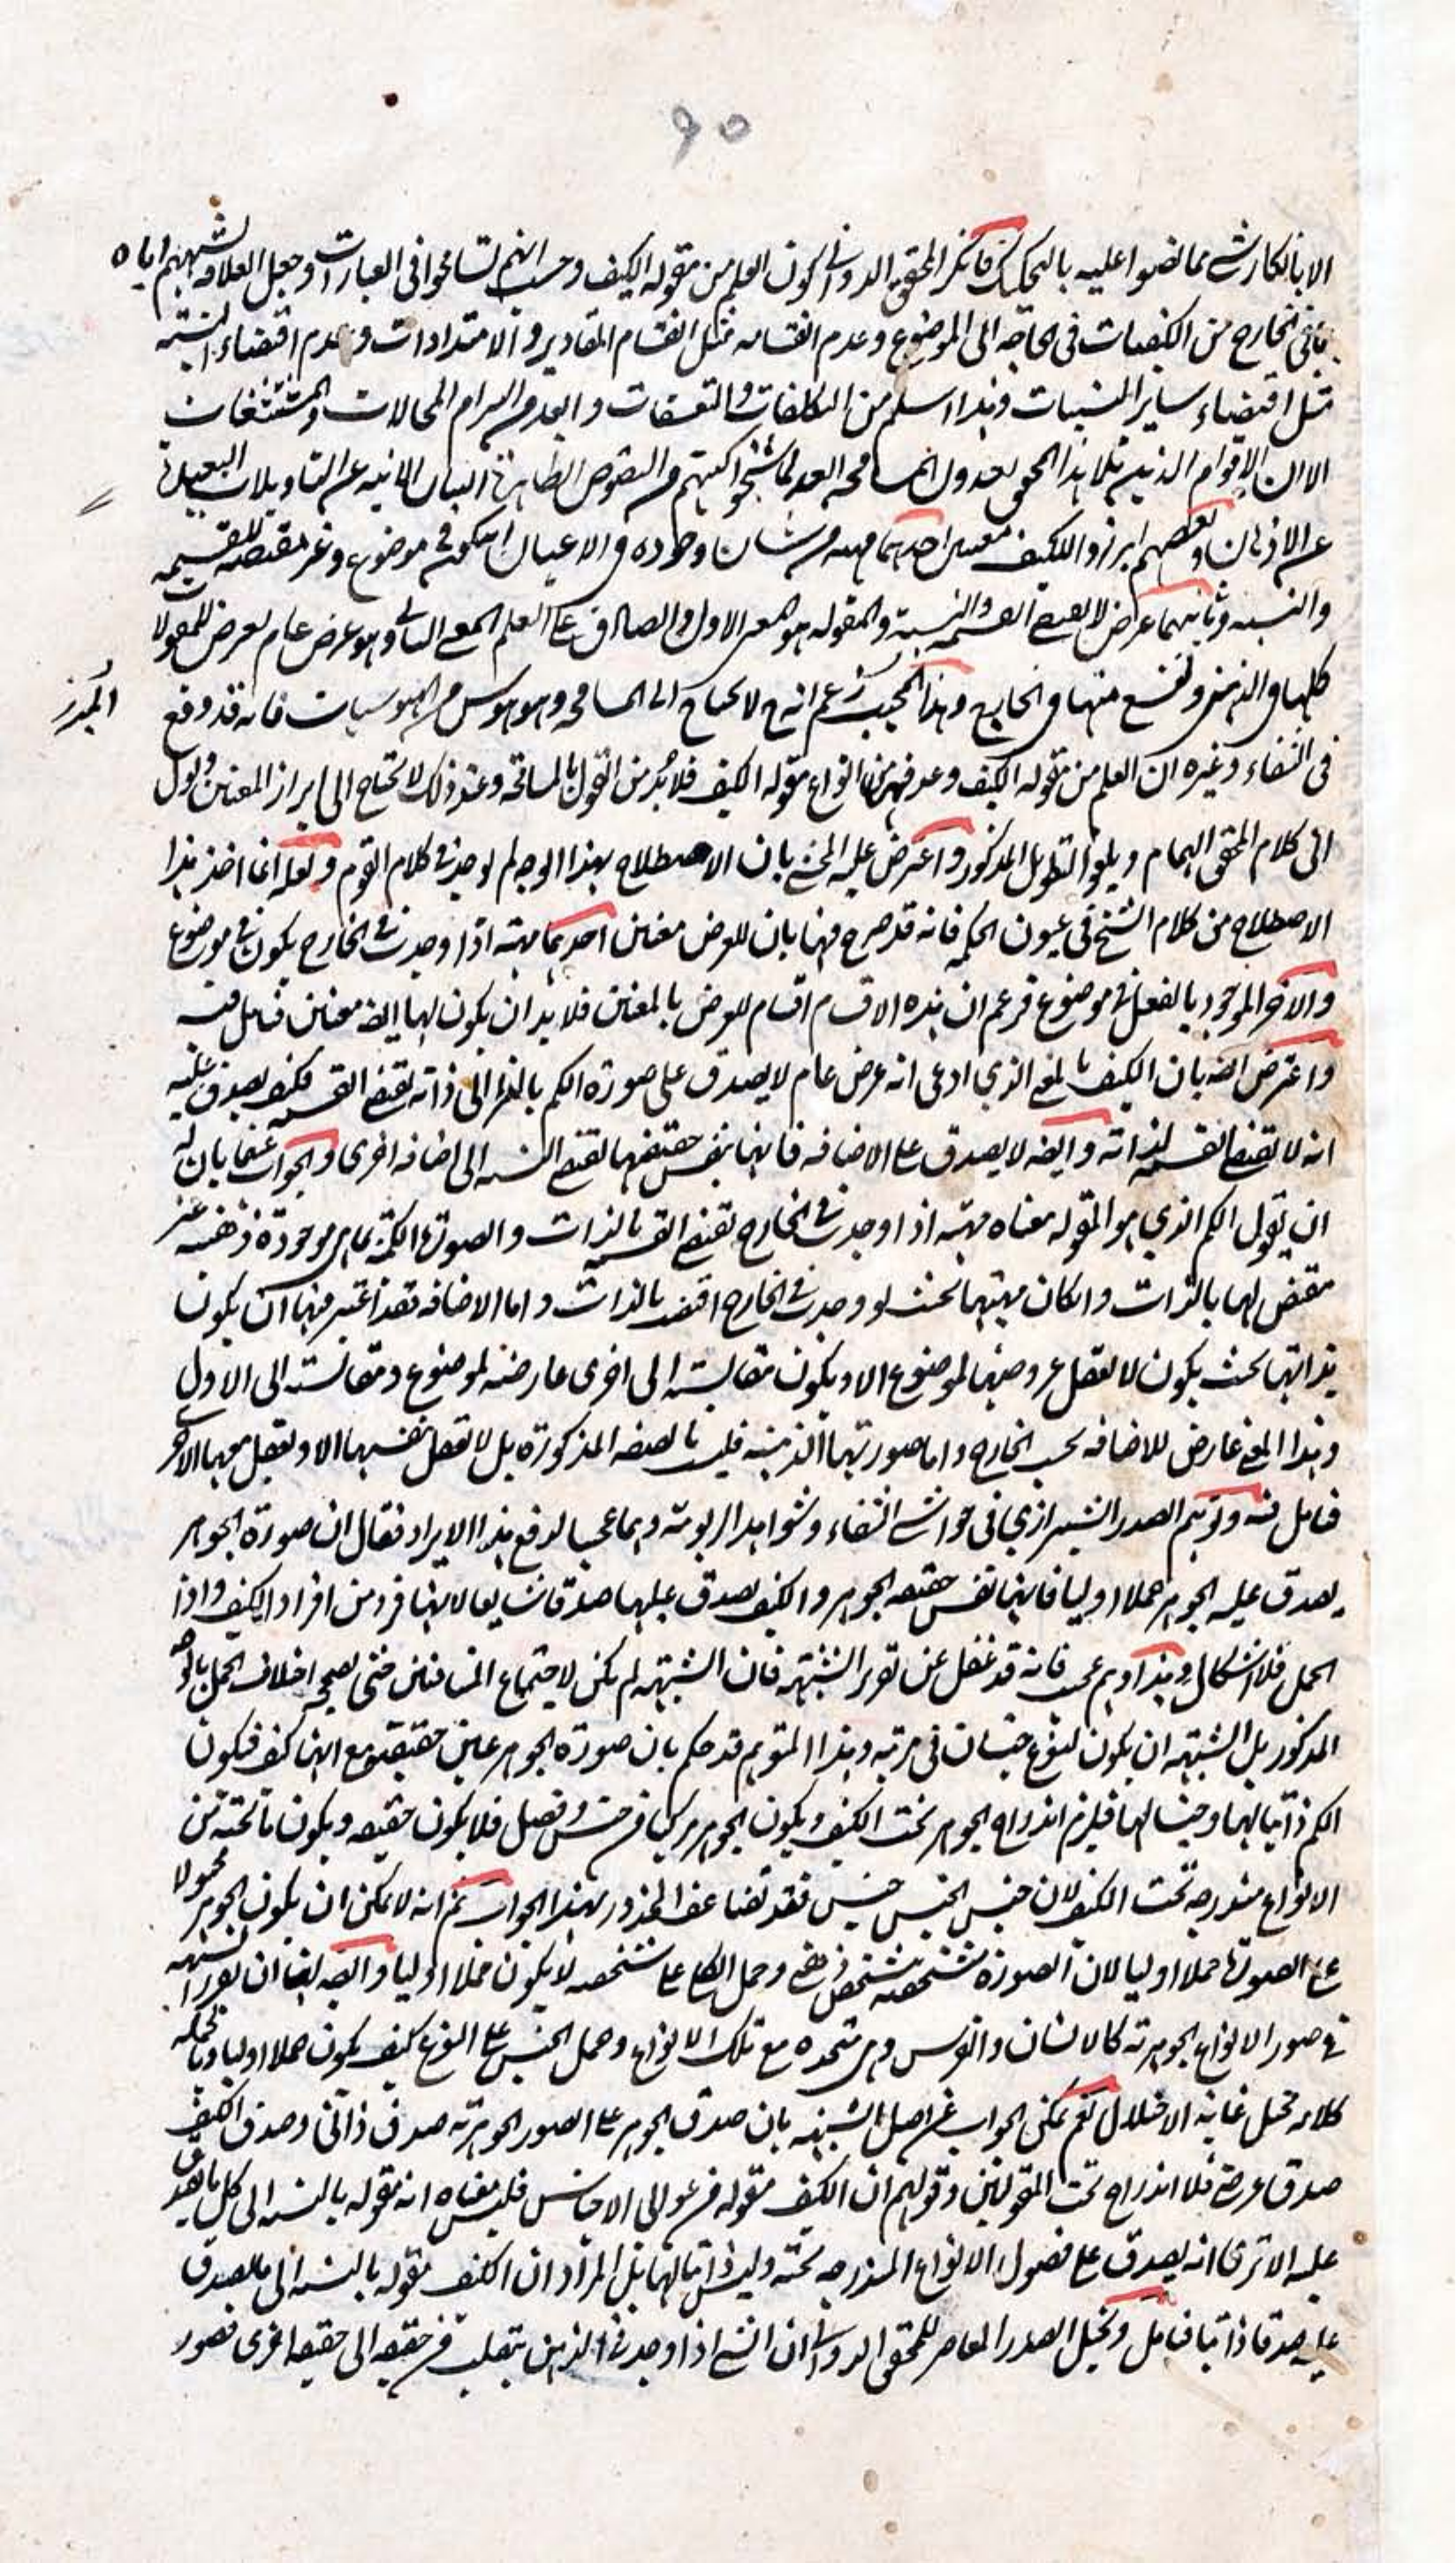 ٩٥
الا بانكار شئ مما نصوا عليه بالتحكيك فانكر المحقق الدوانى كون العلم من مقولة الكيف وحسب انهم تسامحوا فى العبارات وجعل العلاقة تشبيههم اياه
بما فى الخارج من الكيفيات فى الحاجة الى الموضوع وعدم انقسامه مثل انقسام المقادير والامتدادات وعدم اقتضاء النسبة
مثل اقتضاء ساير النسبيات وهذا اسلم من التكلفات والتعسفات وابعد من التزام المحالات والمستشنعات
الا ان الاقوام الذين تلا هذا المحقق لعدول المسامحة
عن الاذهان وبعضهم ابرزوا للكيف معنيين احدهما مهية من شان وجوده فى الاعيان ان يكون فى موضوع وغير مقتضية للقسمة
والنسبة وثانيهما عرض لا يقتضى القسمة والنسبة والمقولة هو المعنى الاول والصادق على العلم المعنى الثانى وهو عرض عام يعرض للمقولات
كلها فى الذهن ولنسع منها فى الخارج وهذا المجيب زعم انه ح لا يحتاج الى المسامحة وهو هوس من الهوسيات فانه قد وقع
فى الشفاء وغيره ان العلم من مقولة الكيف وعد فيهما من انواع مقولة الكيف فلا بد من القول بالمسامحة وعند ذلك لا تحتاج الى ابراز المعنيين ويؤل
الى كلام المحقق الهمام ويلغو التطويل المذكور واعترض عليه المحشى بان الاصطلاح بهذا الوجه لم يوجد فى كلام القوم ولعله انما اخذ هذا
الاصطلاح من كلام الشيخ فى عيون الحكمة فانه قد صرح فيها بان للعرض معنيين احدهما مهية اذا وجدت فى الخارج يكون فى موضوع
والاخر الموجود بالفعل فى موضوع فزعم ان هذه الاقسام اقسام للعرض بالمعنيين فلا بد ان يكون لها ايضا معنيين فتامل فيه
واعترض ايضا بان الكيف بالمعنى الذي ادعى انه عرض عام لا يصدق على صورة الكم بالنظر الى ذاته يقتضى القسمة فكيف يصدق عليه
انه لا يقتضى القسمة لذاته وايضا لا يصدق على الاضافة فانها بنفس حقيقتها تقتضى النسبة الى اضافة اخرى والجواب عنهما بان له
ان يقول الكم الذي هو المقولة معناه مهية اذا وجدت فى الخارج تقتضى القسمة بالذات والصورة الكمية بما هى موجودة ذهنية غير
مقتض لها بالذات وان كان مهيتها بحيث لو وجدت فى الخارج اقتضت بالذات واما الاضافة فقد اعتبر فيها ان يكون
بذاتها بحيث يكون لا يعقل عروضها لموضوع الا ويكون مقايسة الى اخرى عارضة لموضوع ومقايسته الى الاول
وهذا المعنى عارض للاضافة بحسب الخارج واما صورتها الذهنية فليست بالصفة المذكورة بل لا تعقل نفسها الا ويعقل معها الاخر
فتامل فيه وتوهم الصدر الشيرازي فى حواشى الشفاء وشواهد الربوبية وهما عجيبا لدفع هذا الايراد فقال ان صورة الجوهر
يصدق عليه الجوهر حملا اوليا فانها نفس حقيقة الجوهر والكيف يصدق عليها صدقا شايعا لانها فرد من افراد الكيف واذا اختلف
الحمل فلا اشكال وهذا وهم عجيب فانه قد غفل عن تقرير الشبهة فان الشبهة لم تكن لاجتماع المتنافيين حتى يصحح اختلاف الحمل بالوجه
المذكور بل الشبهة ان يكون لنوع جنسان فى مرتبة وهذا المتوهم قد حكم بان صورة الجوهر عين حقيقته مع انها كيف فيكون
الكم ذاتيا لها وجنسا لها فيلزم اندراج الجوهر تحت الكيف ويكون الجوهر مركبا من جنس وفصل فلا يكون حقيقة ويكون ما تحته من
الانواع مندرجة تحت الكيف لان جنس الجنس جنس فقد تضاعف المحذور بهذا الجواب ثم انه لا يمكن ان يكون الجوهر محمولا
على الصورة حملا اوليا لان الصورة متشخصة بتشخص ذهنى وحمل الكلى على شخصه لا يكون حملا اوليا وايضا لنا ان نقرر الشبهة
فى صور الانواع الجوهرية كالانسان والفرس وهى متحدة مع تلك الانواع وحمل الجنس على النوع كيف يكون حملا اوليا وبالجملة
كلامه مختل غاية الاختلال نعم يمكن الجواب عن اصل الشبهة بان صدق الجوهر على الصور الجوهرية صدق ذاتى وصدق الكيف
صدق عرضى فلا اندراج تحت المقولتين وقولهم ان الكيف مقولة من عوالى الاجناس فليس معناه انه مقولة بالنسبة الى كل ما يصدق
عليه الا ترى انه يصدق على فصول الانواع المندرجة تحته وليس ذاتيا لها بل المراد ان الكيف مقولة بالنسبة الى ما يصدق
عليه صدقا ذاتيا فتامل وتخيل الصدر المعاصر للمحقق الدوانى ان الشئ اذا وجد فى الذهن ينقلب من حقيقة الى حقيقة اخرى فصور